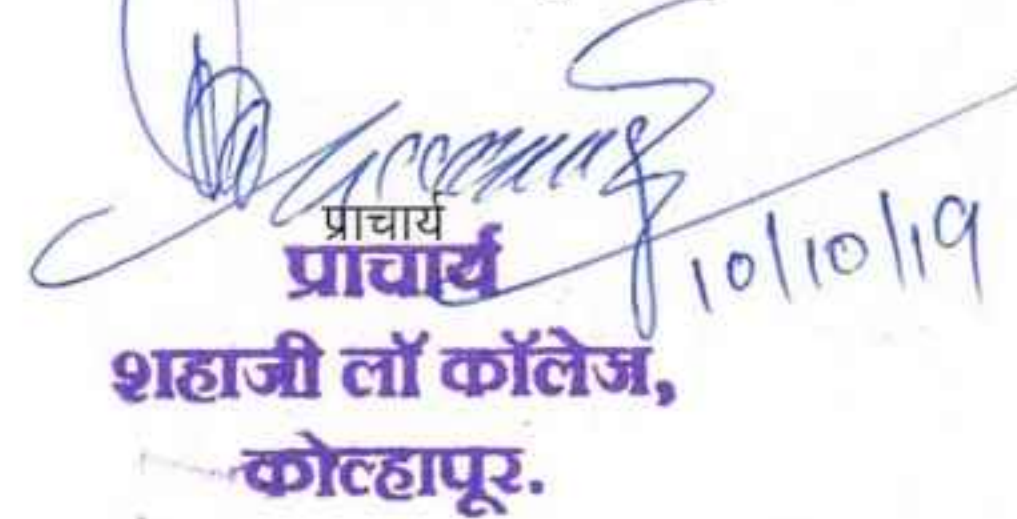 प्राचार्य
10/10/19
प्राचार्य
शहाजी लॉ कॉलेज,
कोल्हापूर.